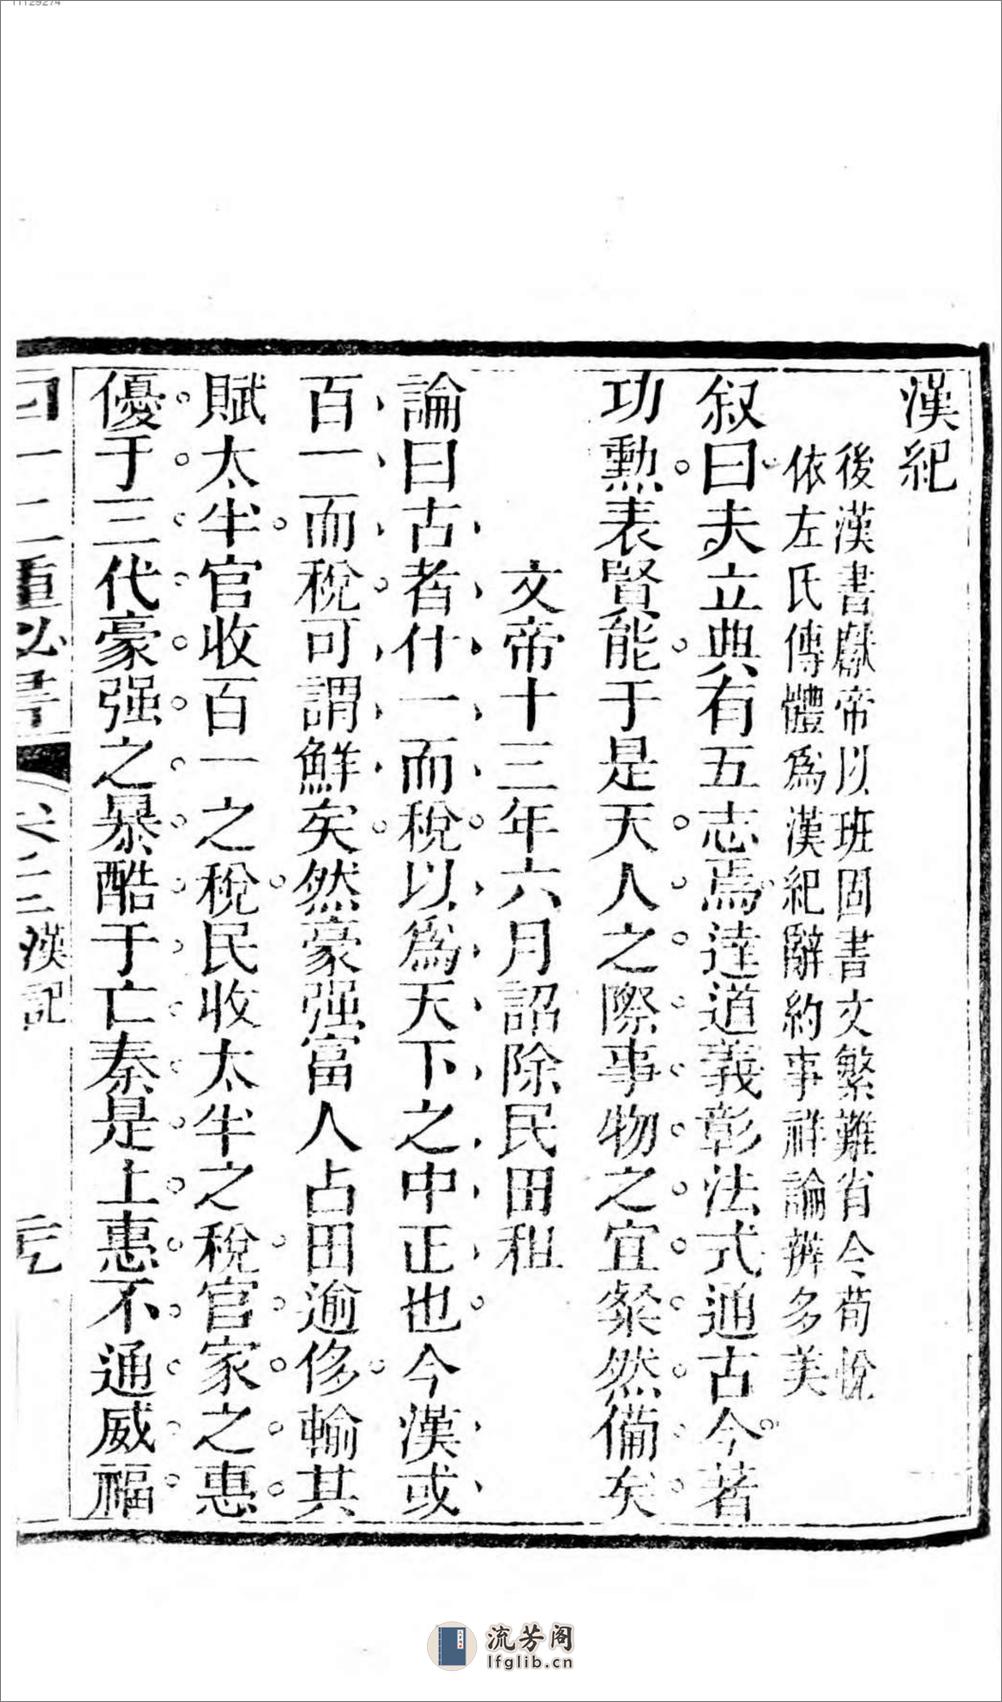 漢紀
後漢書獻帝以班固書文繁難省令荀悅
依左氏傳體爲漢紀辭約事祥論辨多美
叙曰夫立典有五志焉達道義彰法式通古今著
功勲表賢能于是天人之際事物之宜粲然備矣
文帝十三年六月詔除民田租
論曰古者什一而稅以爲天下之中正也今漢或
百一而稅可謂鮮矣然豪强富人占田逾侈輸其
賦太半官收百一之稅民收太半之稅官家之惠
優于三代豪强之暴酷于亡秦是上惠不通威福
漢記
流芳阁
lfglib.cn